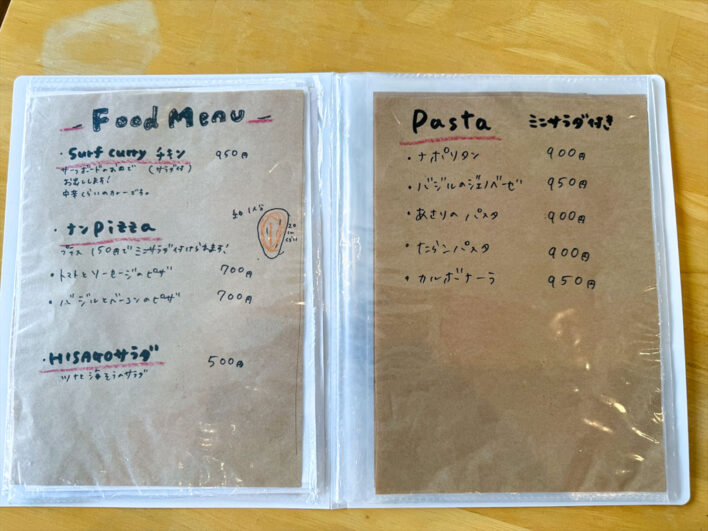 Food Menu
・Surf curry チキン 950円
サーフボードのお皿で (サラダ付)
お出しします!
中辛くらいのカレーです。
・ナンpizza
約1人分
20cmくらい
プラス150円でミニサラダ付けられます!
・トマトとソーセージのピザ 700円
・バジルとベーコンのピザ 700円
・HISAGOサラダ 500円
ツナと海そうのサラダ
Pasta ミニサラダ付き
・ナポリタン 900円
・バジルのジェノベーゼ 950円
・あさりのパスタ 900円
・たらこパスタ 900円
・カルボナーラ 950円